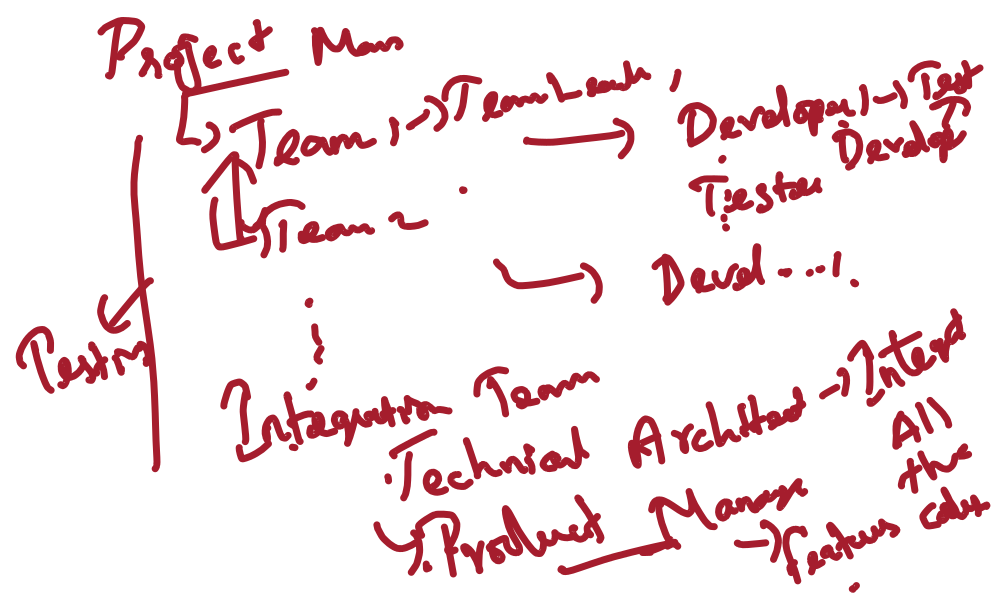 Project Man
Team 1 → Team Lead 1
→ Developer 1 → Test
Develop
Tester
Team 2
→ Devel ..... 1.
Testing
Integration Team
Technical Architect → Integrat
All
the
Product Manage → features code